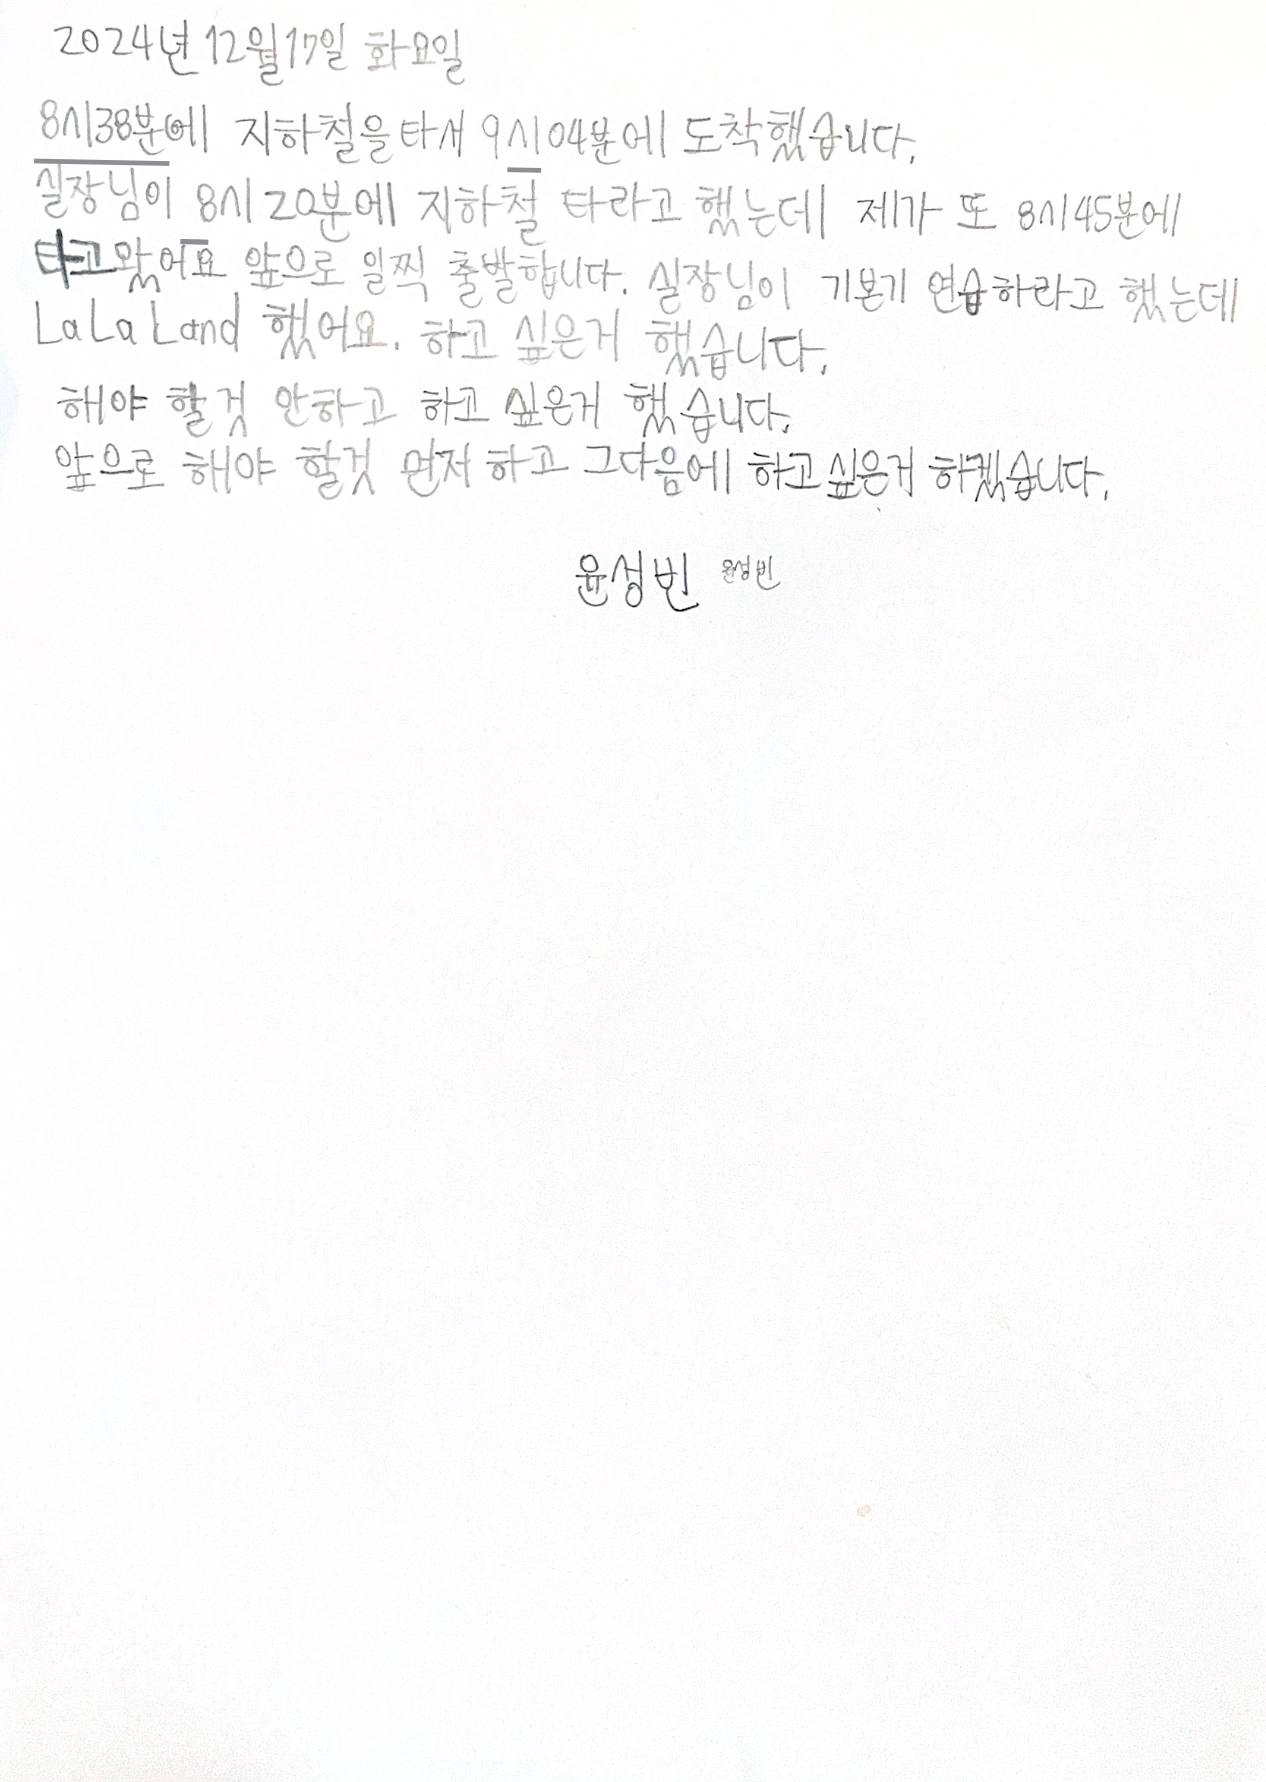 2024년 12월 17일 화요일
8시38분에 지하철을 타서 9시04분에 도착했습니다.
실장님이 8시 20분에 지하철 타라고 했는데 제가 또 8시45분에
타고 왔어요 앞으로 일찍 출발합니다. 실장님이 기본기 연습하라고 했는데
La La Land 했어요. 하고 싶은거 했습니다.
해야 할것 안하고 하고 싶은거 했습니다.
앞으로 해야 할것 먼저 하고 그다음에 하고싶은거 하겠습니다.
윤성빈 윤성빈